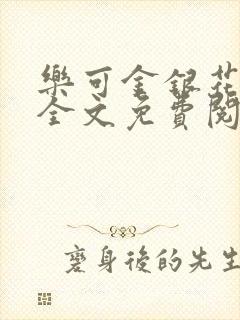 樂可金銀花
全文免費閱
褒身後的先生